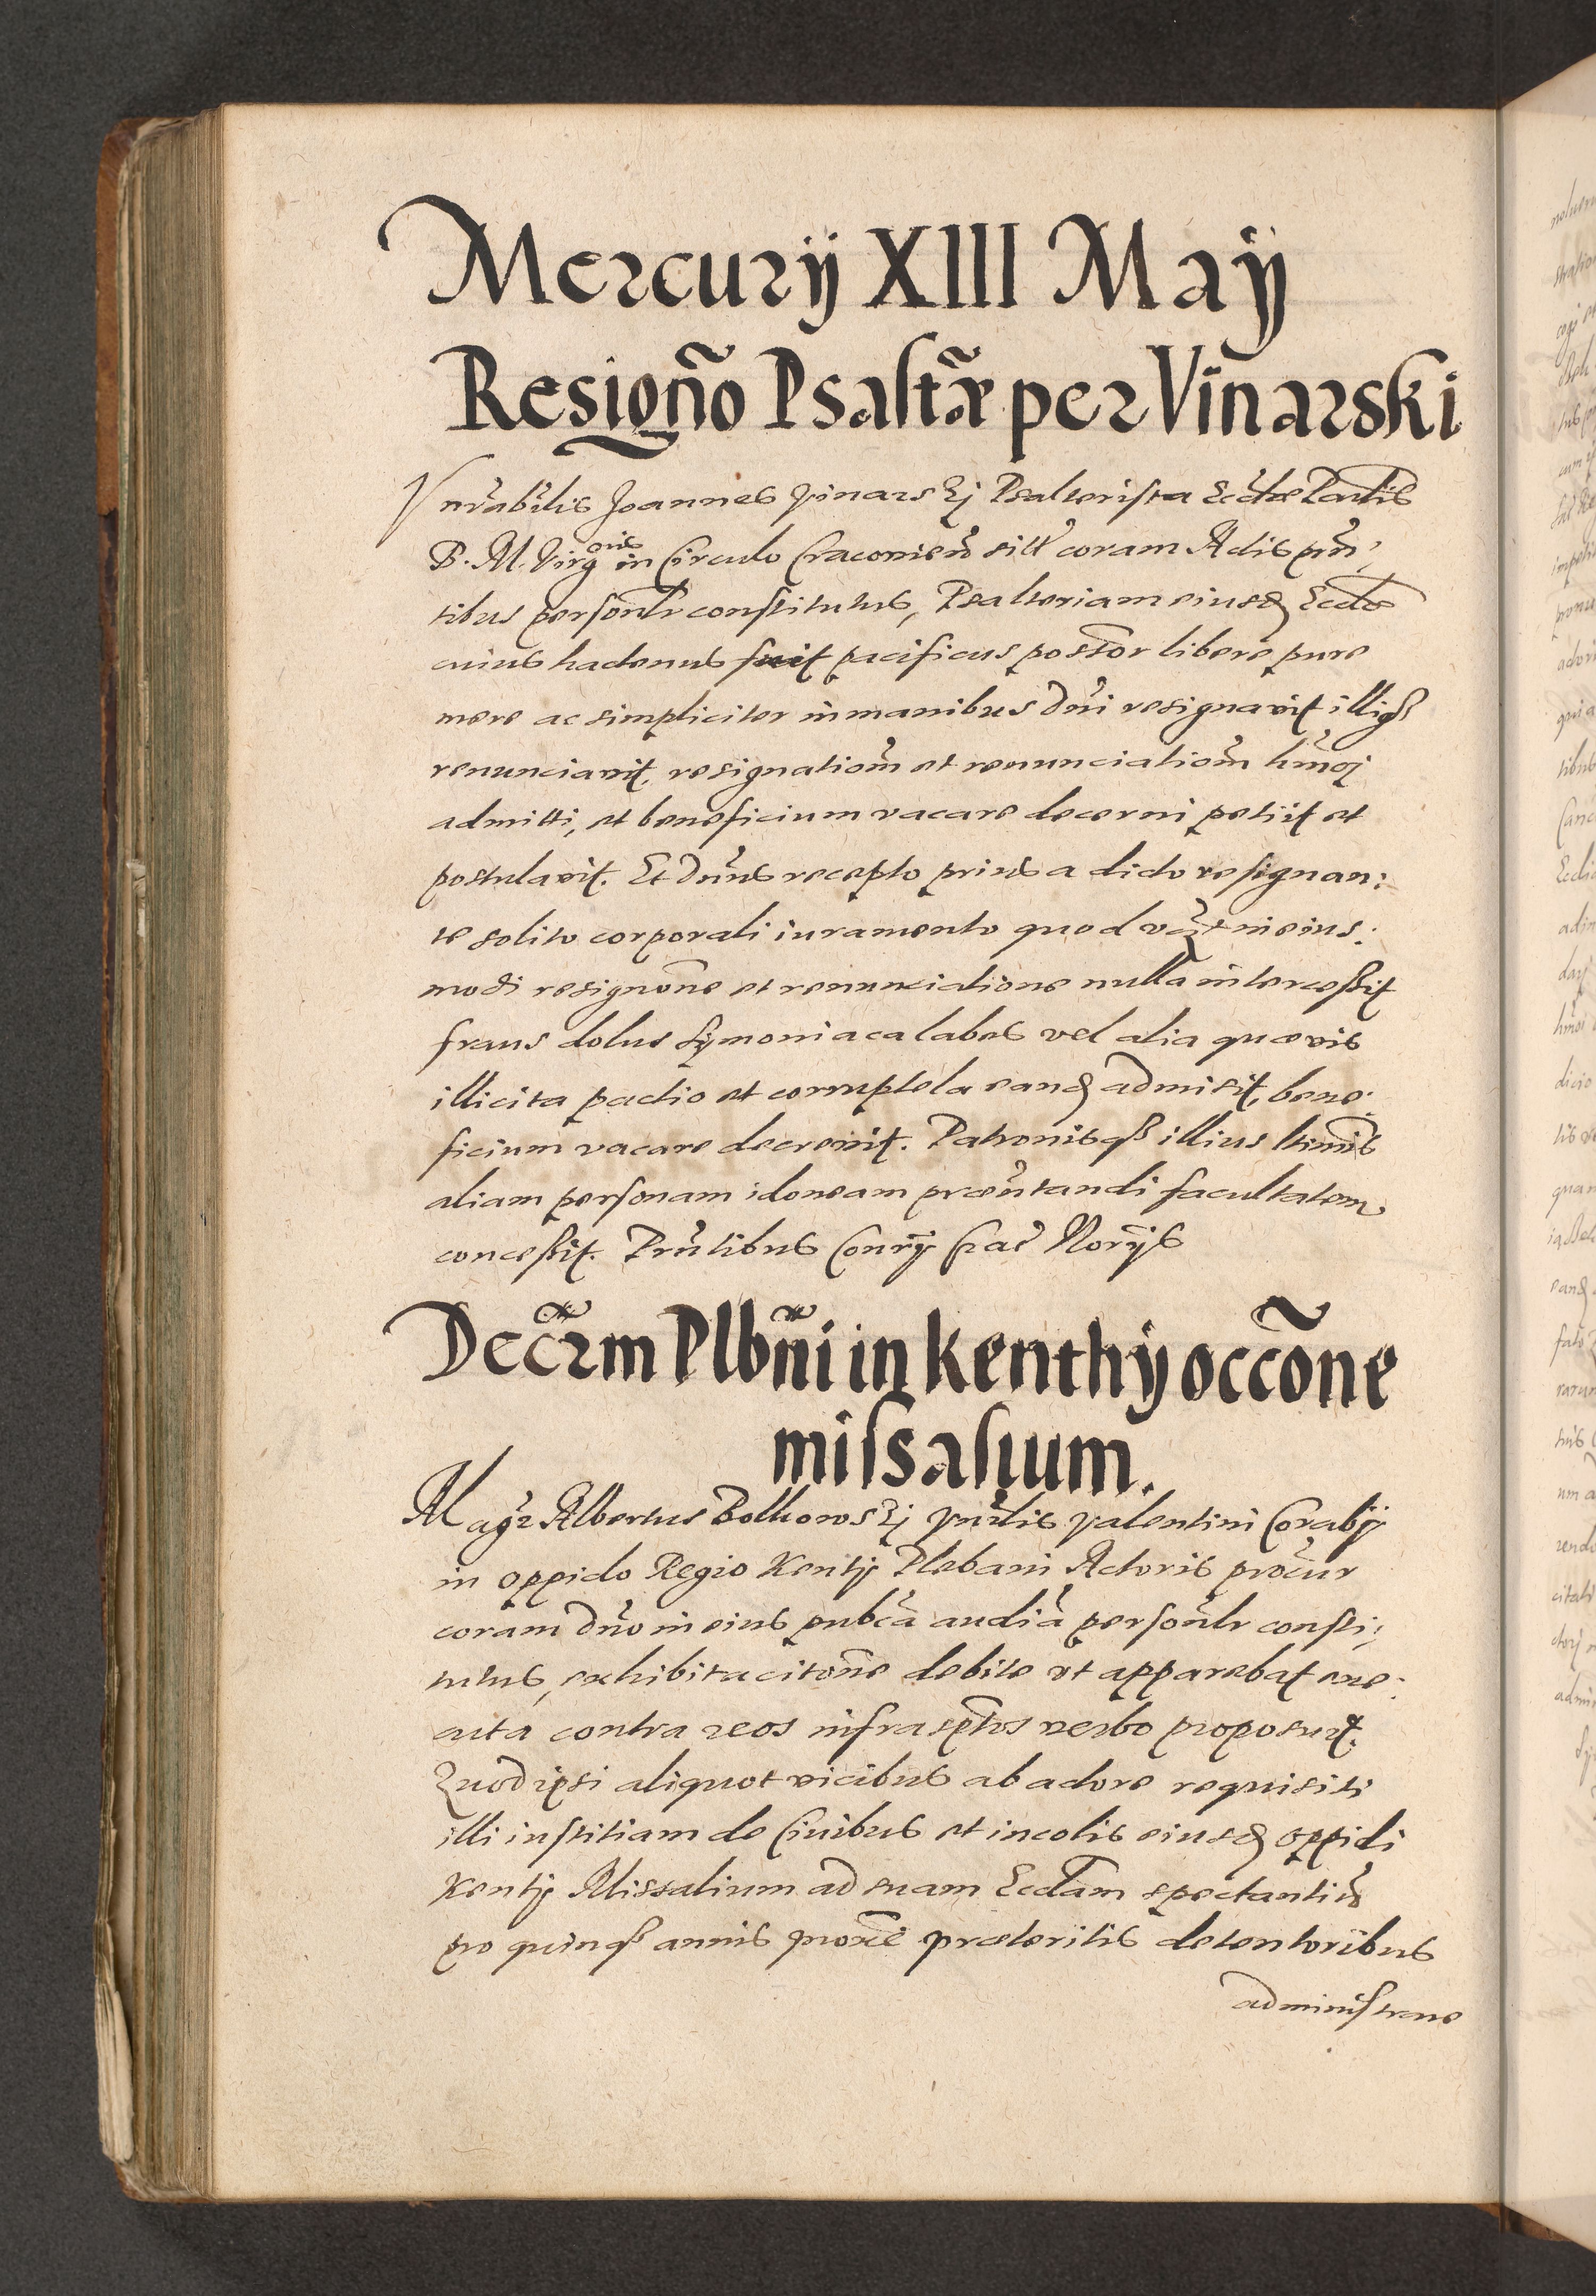 Mercurij XIII Maij
Resigño Psaltæ per Vinarski
Vnrabilis Joannes Vinarskj Psalterista Ecclæ Parlis
B. M. Virginis in Circulo Cracovien̄ sitt coram Actis pn̄:
tibus personlr constitutus, Psalteriam eiusd Ecclæ
cuius hactenus fuit pacificus posśor libere pure
mere ac simpliciter in manibus Dn̄i resignavit illiq3
renunciavit, resignatiom̄ et renunciatiom̄ hm̄oj
admitti, et beneficium vacare decerni petijt et
postulavit. Et Dn̄us recepto prius a dicto resignan:
te solito corporali iuramento quod in eius:
modi resignōne et renunciatione nulla intercessit
fraus dolus Symoniaca labes vel alia quævis
illicita pactio et corruptela eand admisit, bene:
ficium vacare decrevit. Patronisq3 illius ltimis
aliam personam idoneam præn̄tandi facultatem
concessit. Prn̄tibus Conrij Crac Norijs
Decr̄m Plbn̄i in Kenthy occōne
missalium.
Magr Albertus Bolkowskj Vnrlis Valentini Corabij
in oppido Regio Kentij Plebani Actoris procur
coram Dn̄o in eius pubca audia personlr consti:
tutus, exhibita citōne debite vt apparebat exe:
cuta contra reos infrasptos verbo proposuit.
Quod ipsi aliquot vicibus ab actore requisiti
illi iustitiam de Civibus et incolis eiusd oppidi
Kentij Missalium ad suam Ecclam spectantiū
pro quinq3 annis proxe præteritis detentoribus
administrare